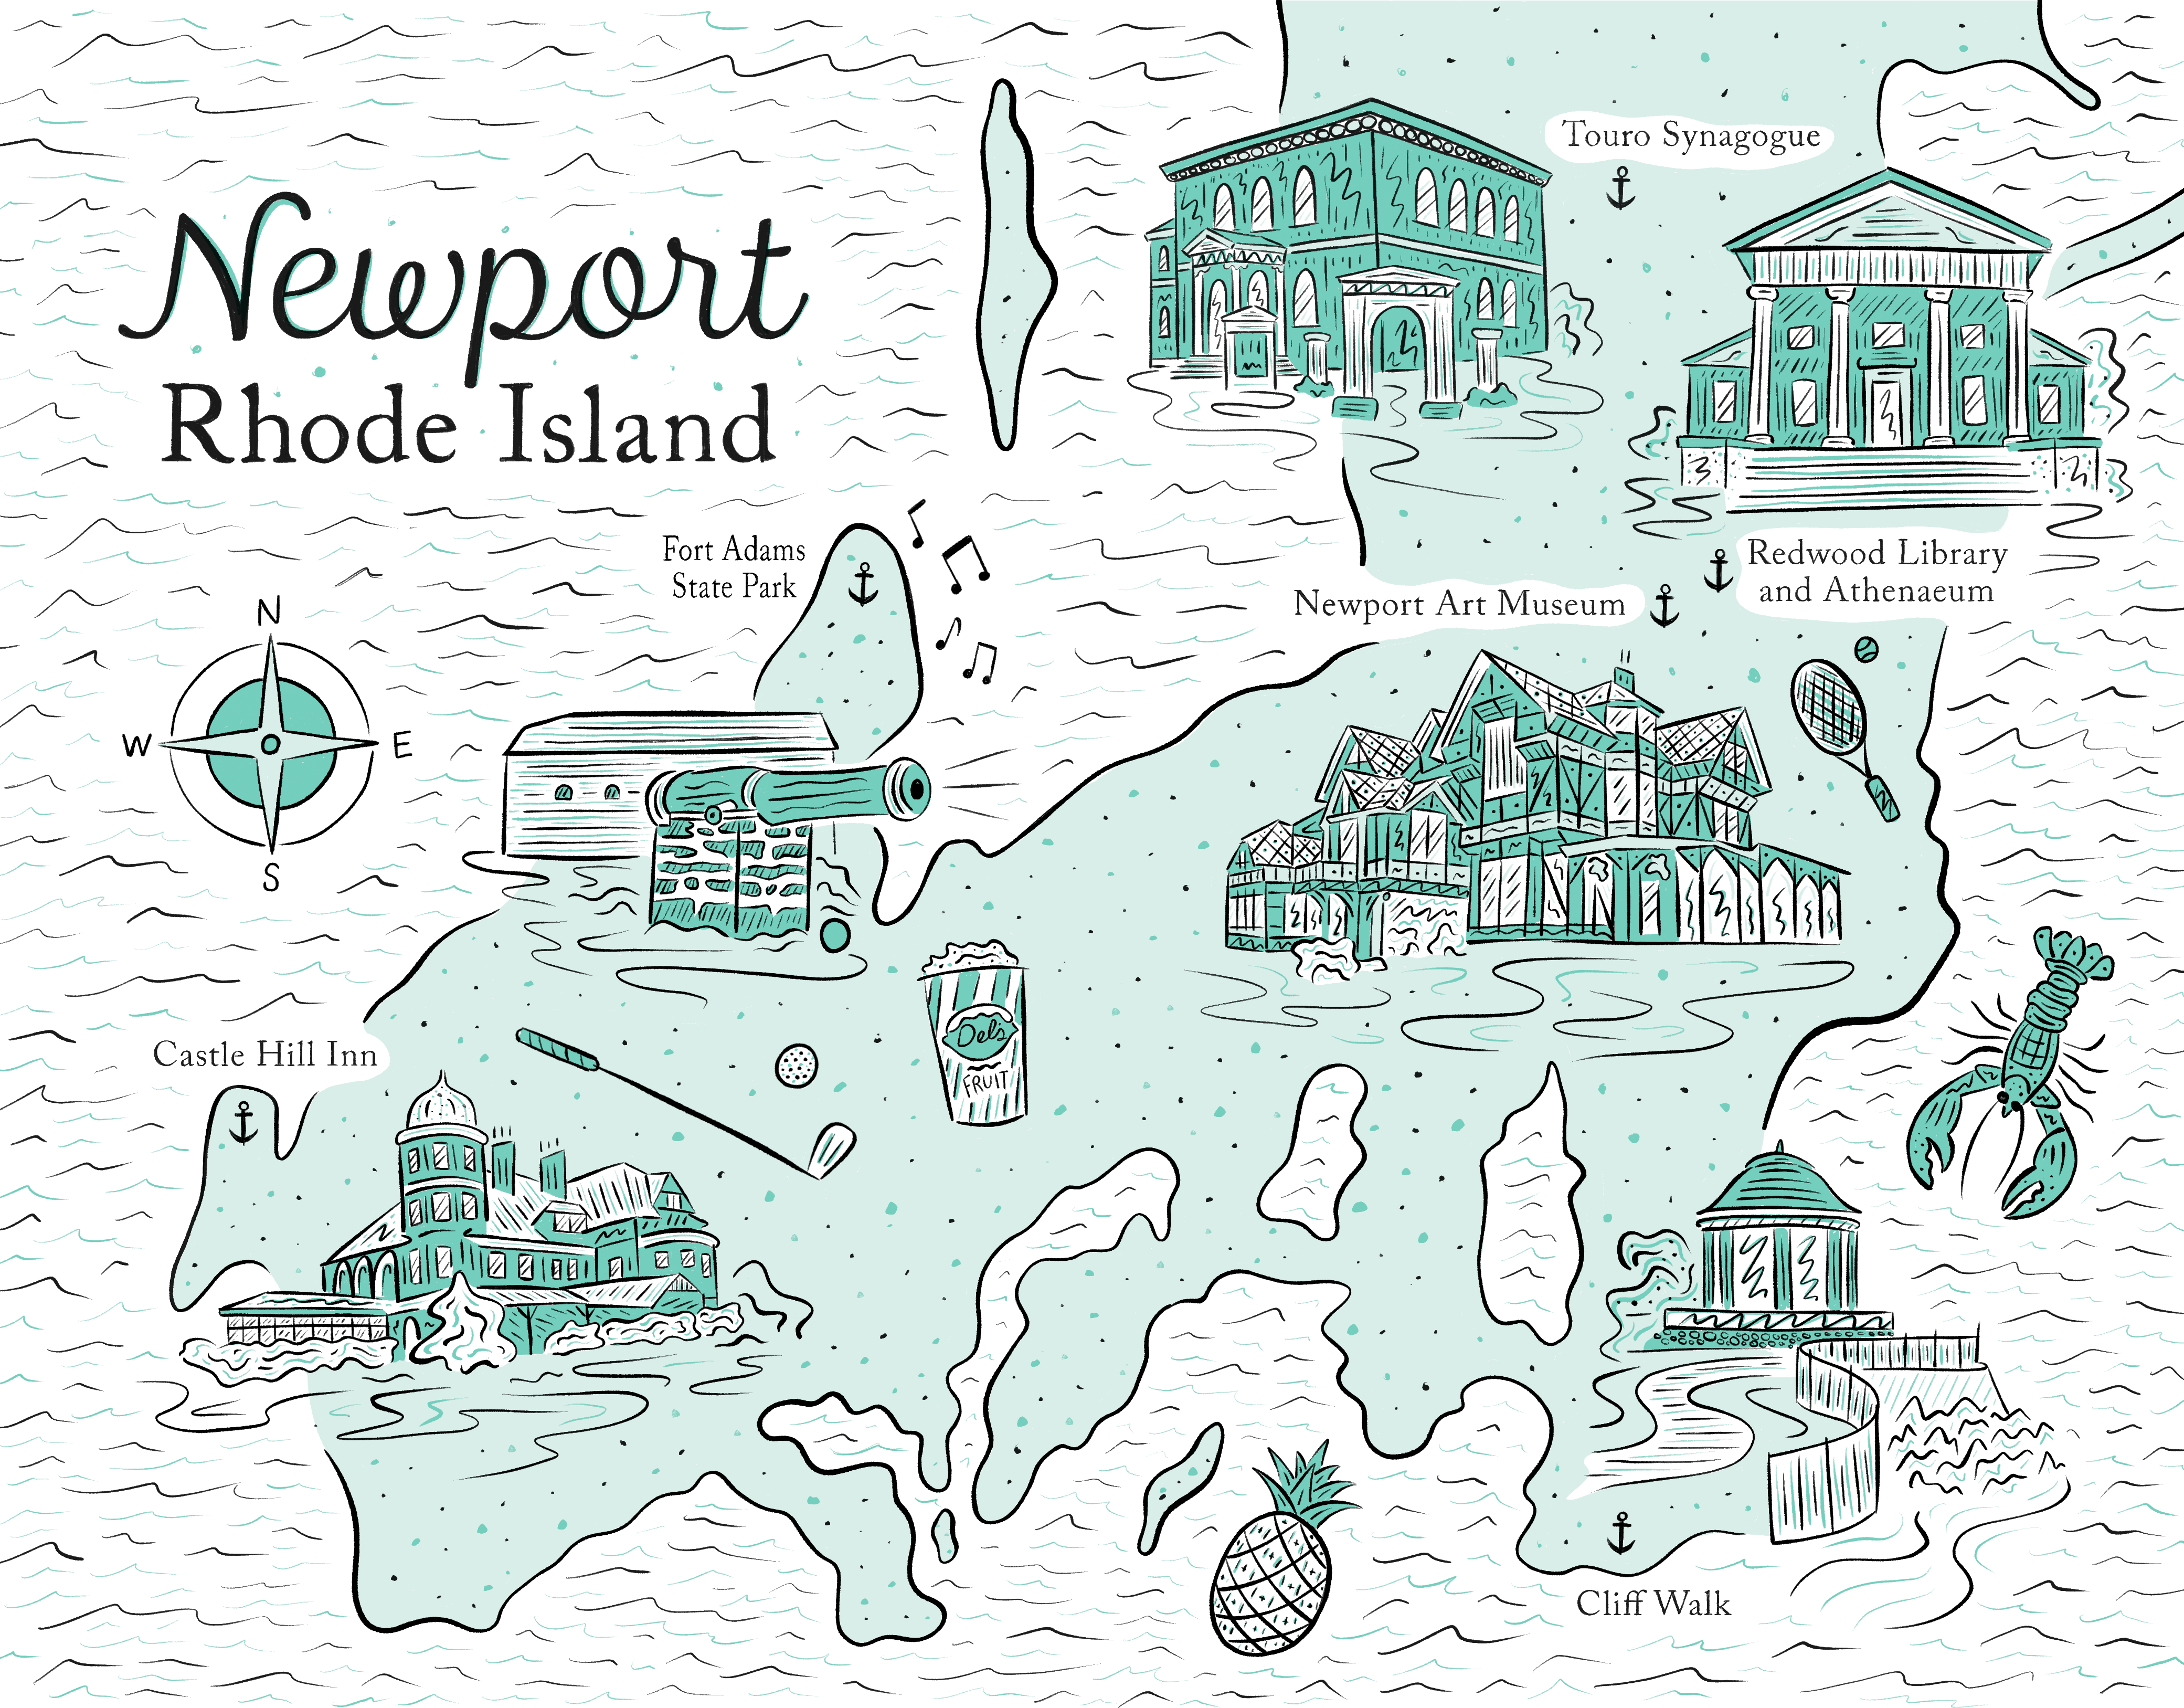 Newport
Rhode Island
Touro Synagogue
Fort Adams
State Park
Redwood Library
and Athenaeum
Newport Art Museum
N
W
E
S
Castle Hill Inn
Dels
FRUIT
Cliff Walk